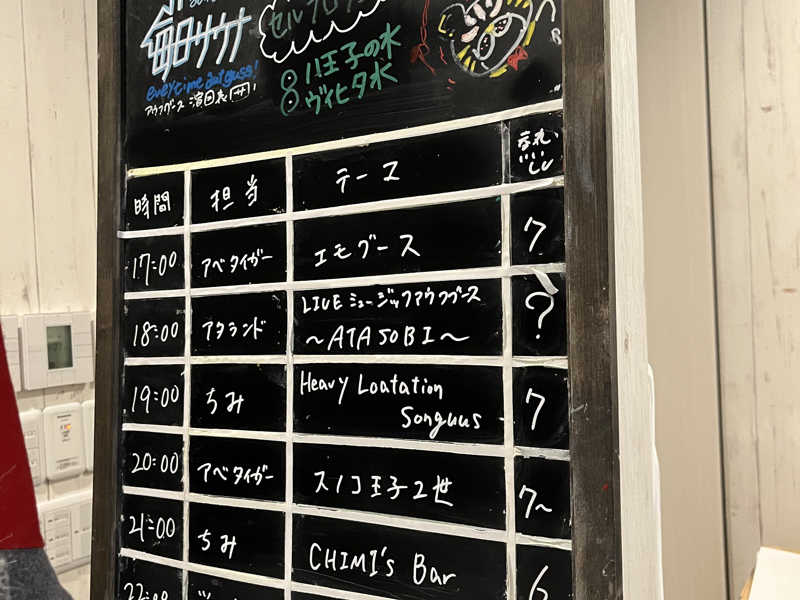 毎日サウナ
セルフロウリュ
everytime aufguss!
アウフグース演目表(サ)!
8 八王子の水
ヴィヒタ水
時間 担当 テーマ
17:00 アベタイガー エモグース 7
18:00 アタランド LIVE ミュージックアウフグース ?
〜ATASOBI〜
19:00 ちみ Heavy Loatation 7
Songuus
20:00 アベタイガー スノコ王子2世 7~
21:00 ちみ CHIMI's Bar 6
22:00